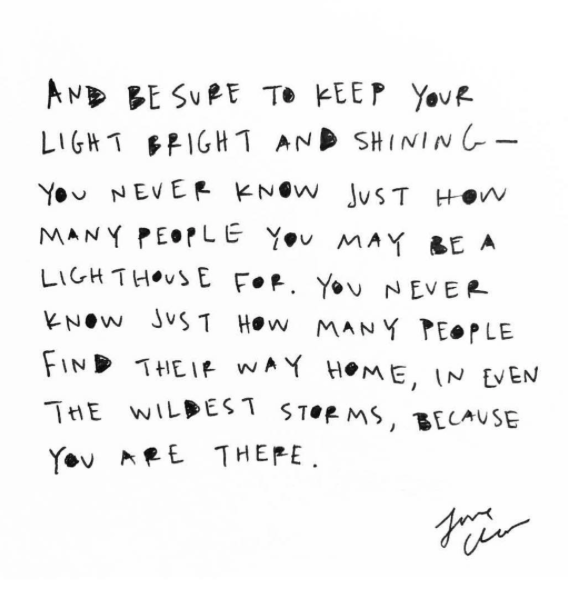 AND BE SURE TO KEEP YOUR
LIGHT BRIGHT AND SHINING—
YOU NEVER KNOW JUST HOW
MANY PEOPLE YOU MAY BE A
LIGHTHOUSE FOR. YOU NEVER
KNOW JUST HOW MANY PEOPLE
FIND THEIR WAY HOME, IN EVEN
THE WILDEST STORMS, BECAUSE
YOU ARE THERE.